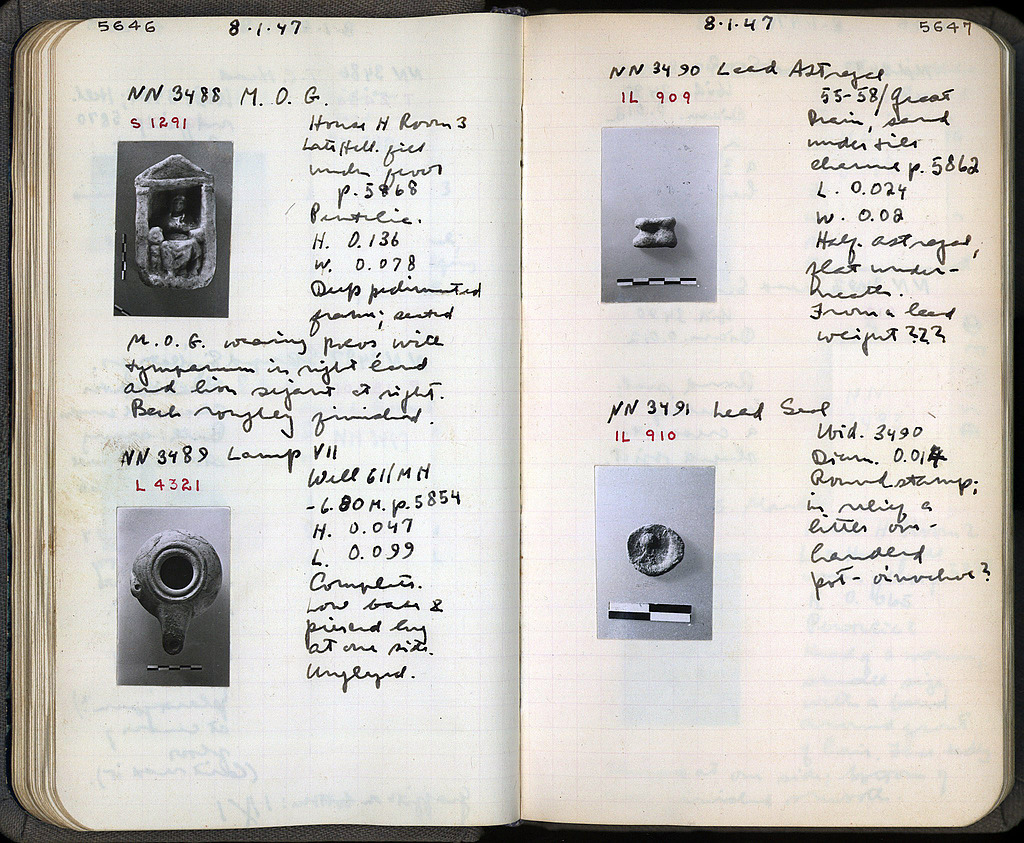 5646
8·1·47
NN 3488 M. O. G.
S 1291
House H Room 3
Late Hell. fill
under floor
p. 5868
Pentelic.
H. 0.136
W. 0.078
Deep pedimented
frame; seated
M. O. G. wearing polos with
tympanum in right hand
and lion sejant at right.
Back roughly finished.
NN 3489 Lamp VII
L 4321
Well 61/MH
-6.80 M. p. 5854
H. 0.047
L. 0.099
Complete.
Low base &
pierced lug
at one side.
Unglazed.
8·1·47
5647
NN 3490 Lead Astragal
IL 909
55-58/Great
Drain, sand
under tile
channel p. 5862
L. 0.024
W. 0.02
Half astragal,
flat under-
neath.
From a lead
weight ???
NN 3491 Lead Seal
IL 910
Ibid. 3490
Diam. 0.014
Round stamp;
in relief, a
little one-
handled
pot - oinochoe?